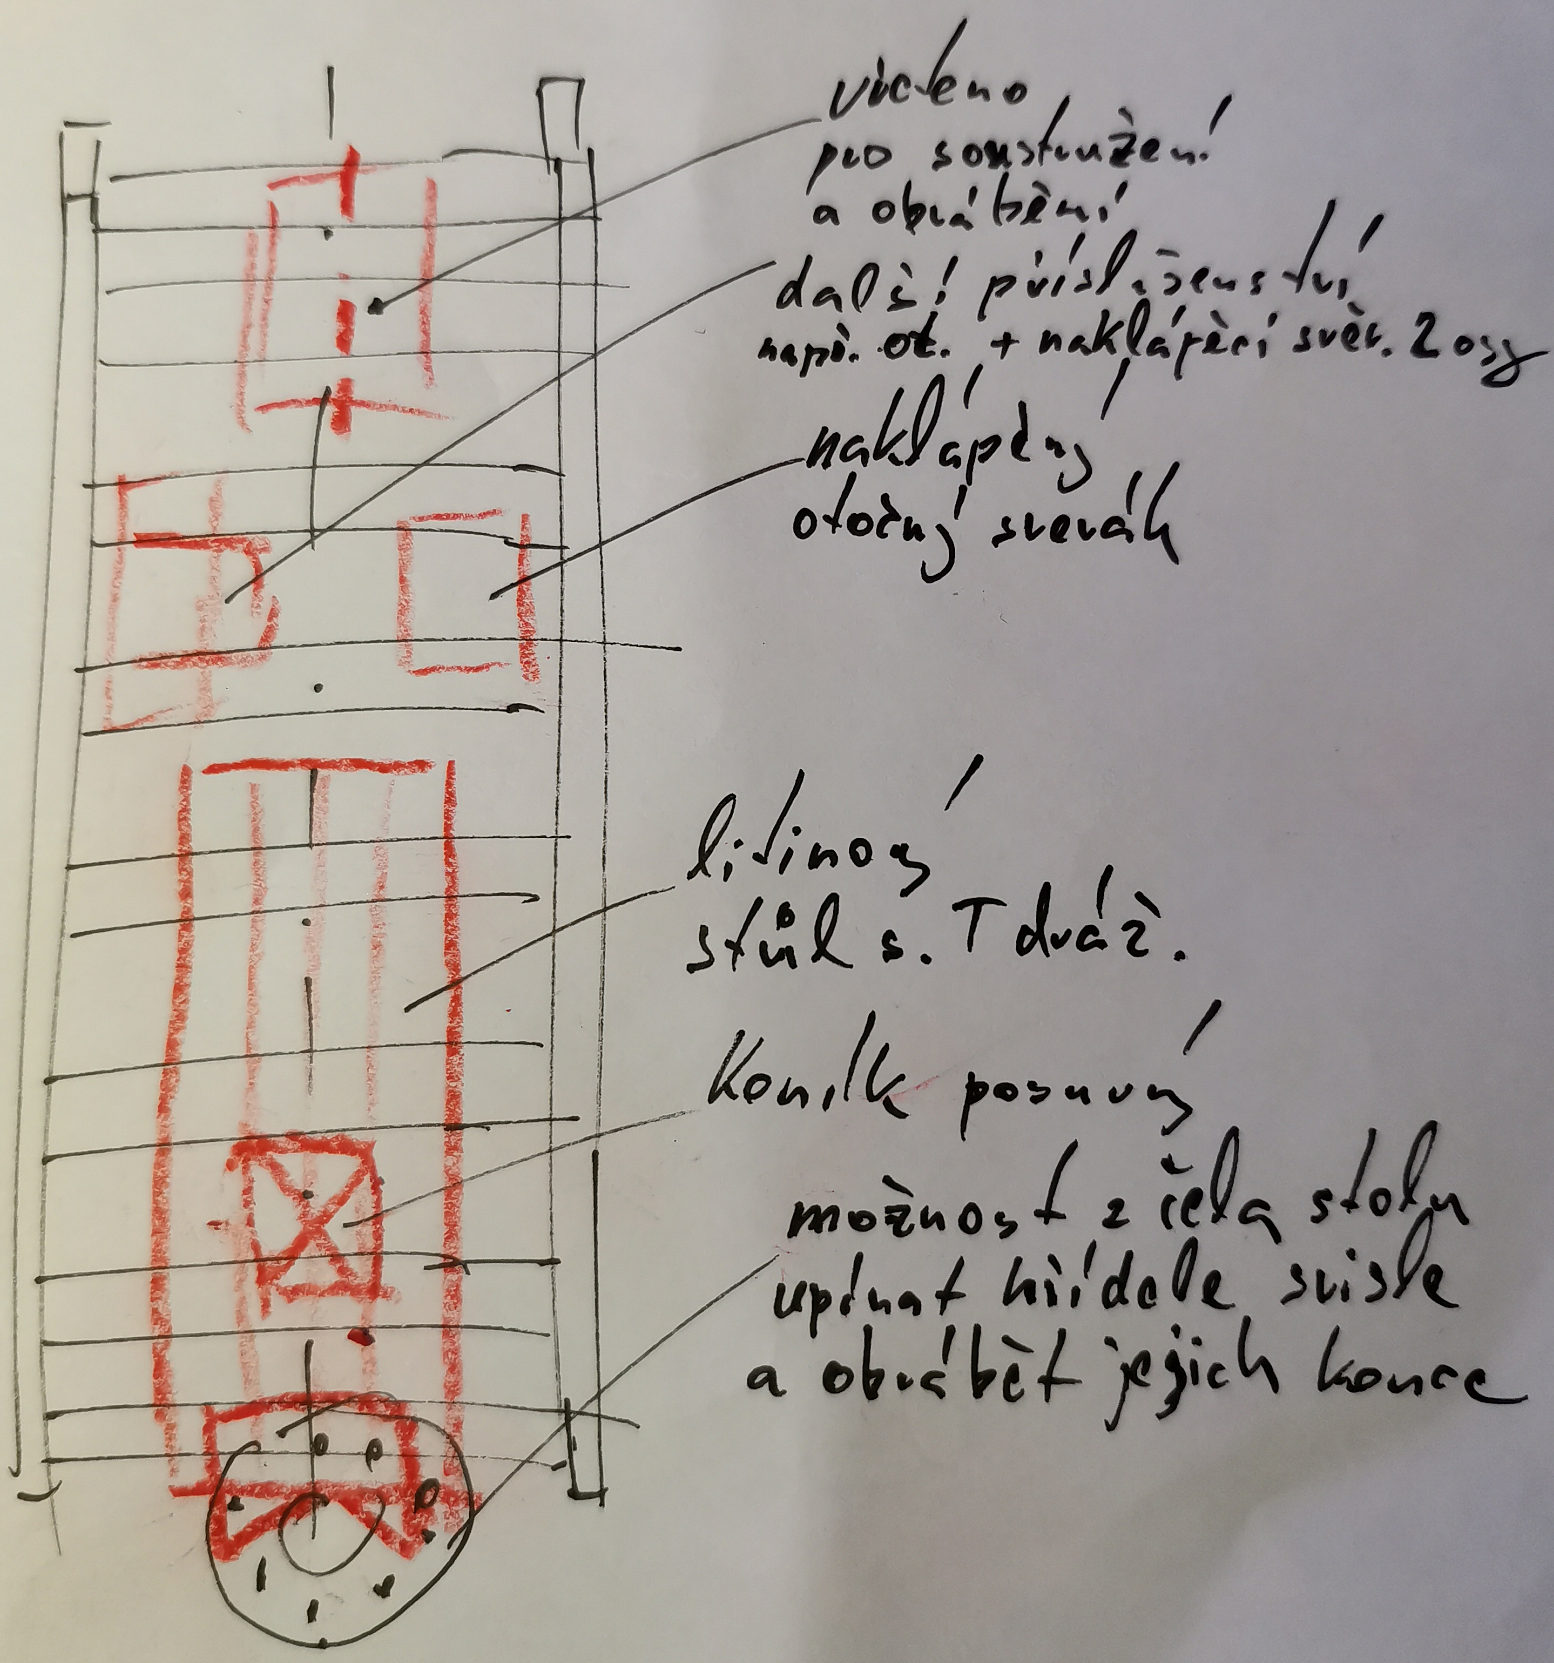 vřeteno
pro soustružení
a obrábění
další příslušenství
např. ot. + naklápěcí svěr. 2 osy
naklápěný
otočný svěrák
litinový
stůl s. T dráž.
Koník posuvný
možnost z čela stolu
upínat hřídele svisle
a obrábět jejich konce